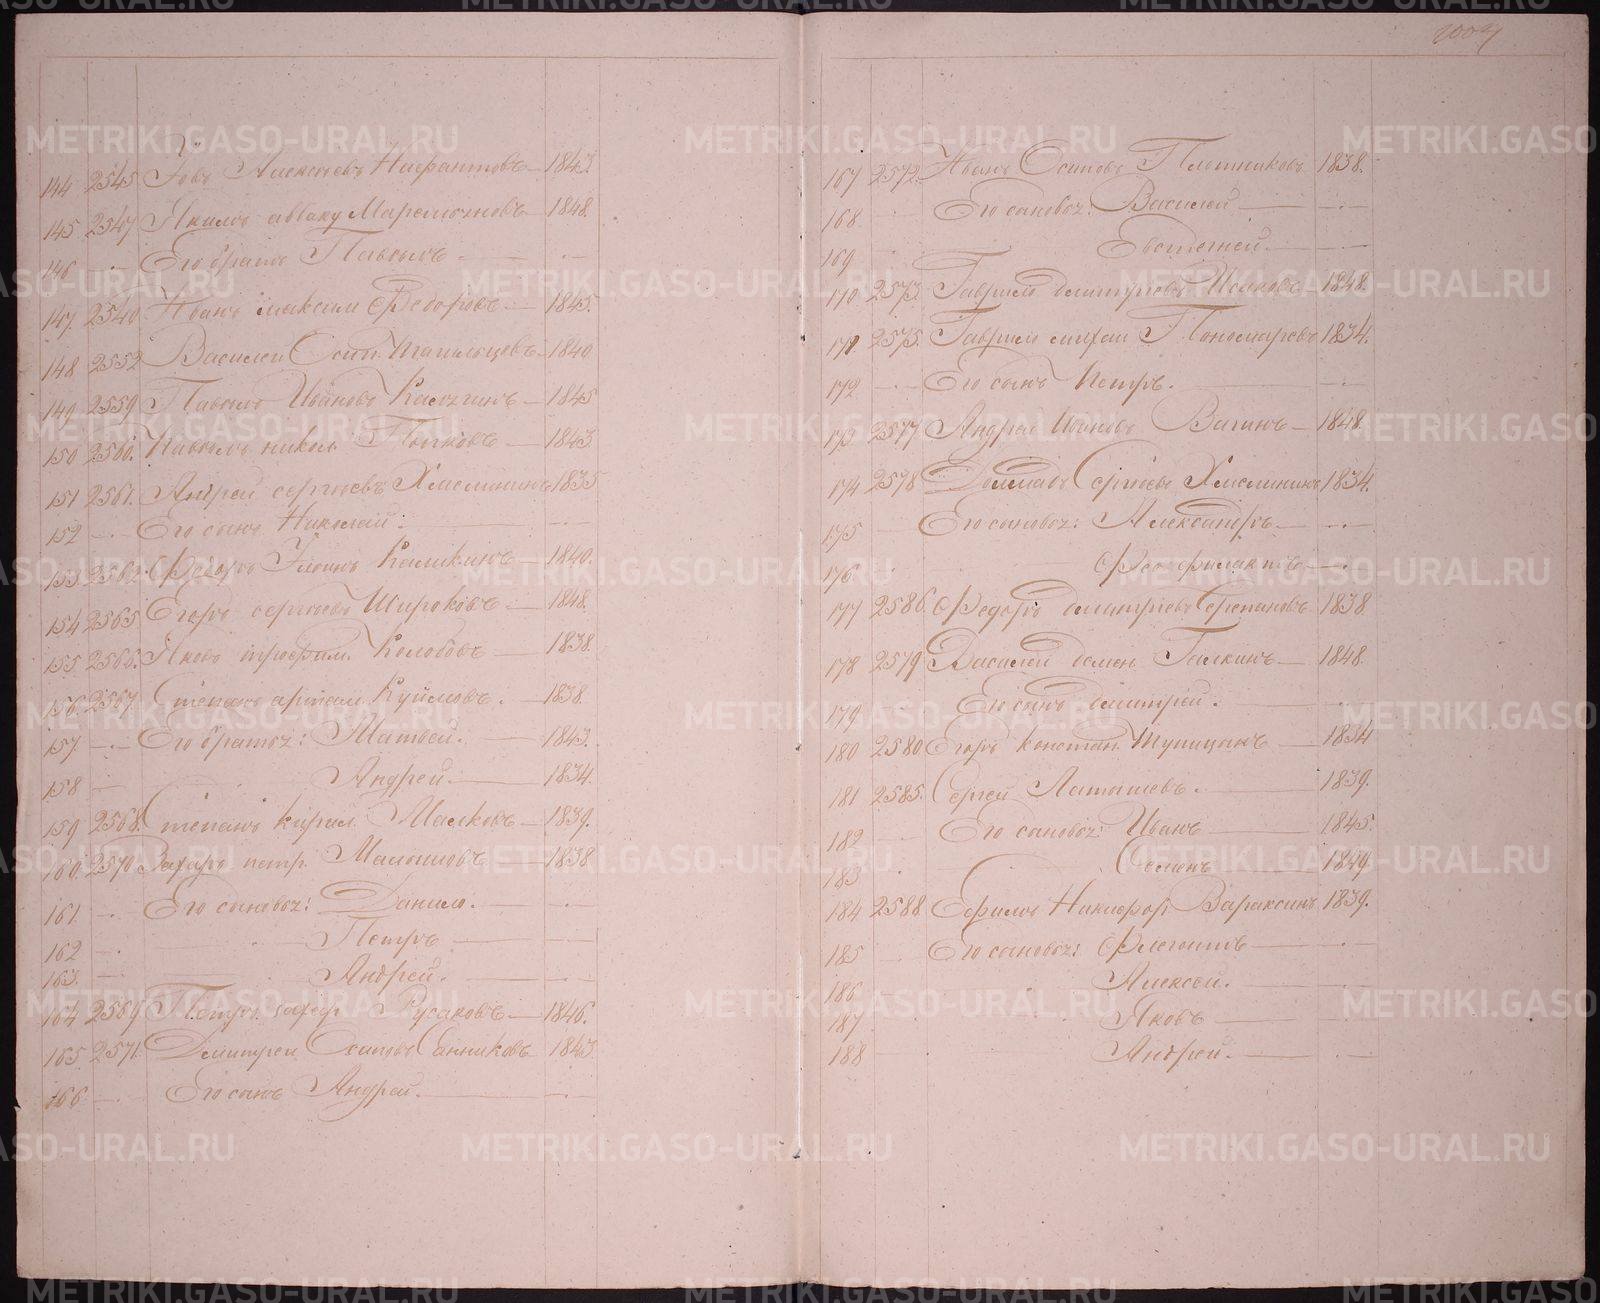 144 2545 Іовъ Алексѣевъ Ниѳантовъ 1843.
145 2547 Якимъ авваку Маремьяновъ 1848.
146 Его братъ Павелъ
147. 2549 Иванъ максим Ѳедоровъ 1845.
148 2552 Василей Осип. Тагильцевъ 1840
149 2559 Павелъ Ивановъ Калугинъ 1845
150 2560. Павелъ никол. Попковъ 1843
151 2561. Андрей сергѣевъ Хмелининъ 1835
152 Его сынъ Николай:
153 2562 Ѳедоръ Ильинъ Каликинъ 1840.
154 2565 Егоръ сергѣевъ Широковъ 1848.
155. 2566. Яковъ трофим. Колобовъ 1838.
156. 2567. Степанъ артам Куимовъ. 1838.
157 Его братья: Матвей. 1843.
158 Андрей. 1834.
159 2568. Степанъ кирил. Малковъ 1839.
160. 2570 Захаръ петр. Малышовъ 1838
161 Его сыновья: Данило.
162 Петръ
163. Андрей.
164 2569 Петръ захар Русаковъ 1846.
165. 2571. Дмитрей Осиповъ Санниковъ 1843
166 Его сынъ Андрей.
167 2572. Иванъ Осиповъ Плотниковъ 1838.
168 Его сыновья: Василей
169 Евстегней.
170 2573. Гаврило дмитріевъ Исаковъ 1848.
171. 2575. Гаврило михаи Пономаревъ 1834.
172 Его сынъ Петръ.
173 2577 Андрей Ивановъ Вагинъ 1848.
174 2578 Сергѣевъ Хмелининъ 1834.
175 Его сыновья: Александръ
176 Ѳеофилактъ
177 2586. Ѳедоръ дмитріевъ Степановъ 1838
178 2579 Василей семен Галкинъ 1848.
179 Его сынъ дмитрей.
180 2580 Егоръ констан. Тупицынъ 1834
181 2585. Сергей Латышевъ. 1839.
182 Его сыновья: Иванъ 1845.
183 Семенъ 1849
184 2588 Ефимъ Никифор. Вараксинъ 1839.
185 Его сыновья: Флегонтъ
186 Алексѣй.
187 Яковъ
188 Андрей.
METRIKI.GASO-URAL.RU